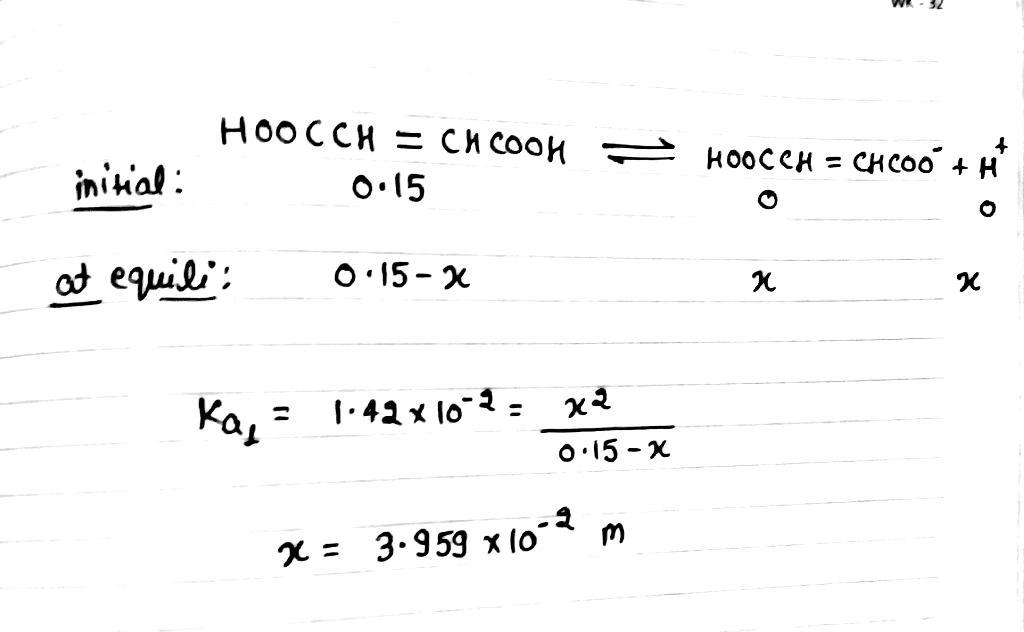 WK - 32
HOOCCH = CHCOOH ⇌ HOOCCH = CHCOO⁻ + H⁺
initial: 0.15 0 0
at equili: 0.15 - x x x
Ka₁ = 1.42 x 10⁻² = x² / 0.15 - x
x = 3.959 x 10⁻² m